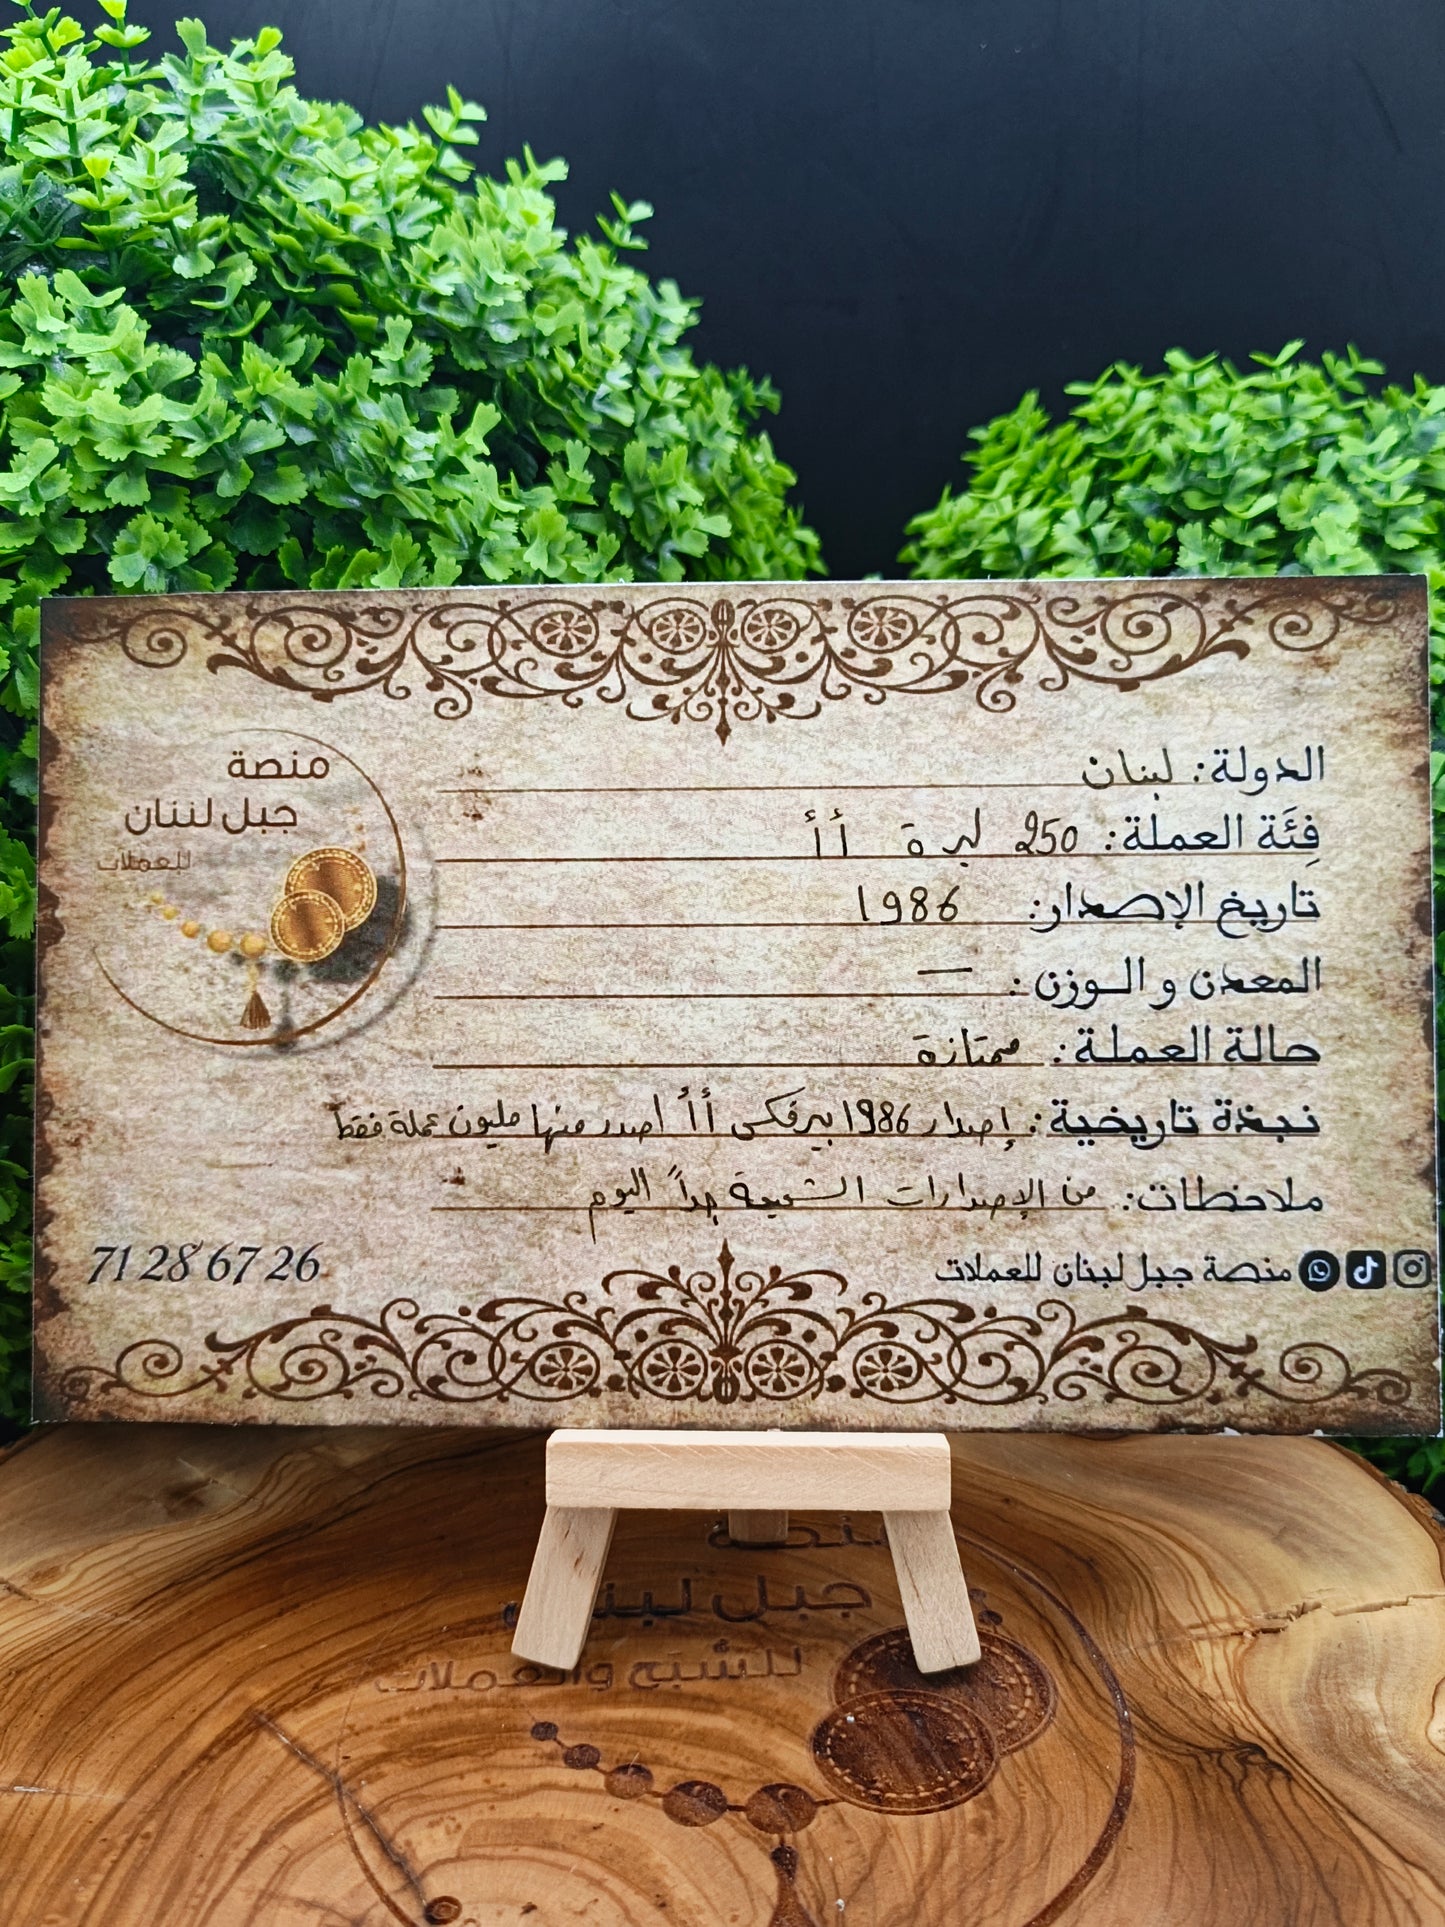 منصة
جبل لبنان
للعملات
الدولة: لبنان
فِئَة العملة: 250 ليرة أأ
تاريخ الإصدار: 1986
المعدن و الـوزن: —
حالة العملة: ممتازة
نبذة تاريخية: إصدار 1986 بيرفكس أأ اصدر منها مليون عملة فقط
ملاحظات: من الإصدارات الشحيحة جداً اليوم
منصة جبل لبنان للعملات
71 28 67 26
منصة
جبل لبنان
للسُّبَح والعملات